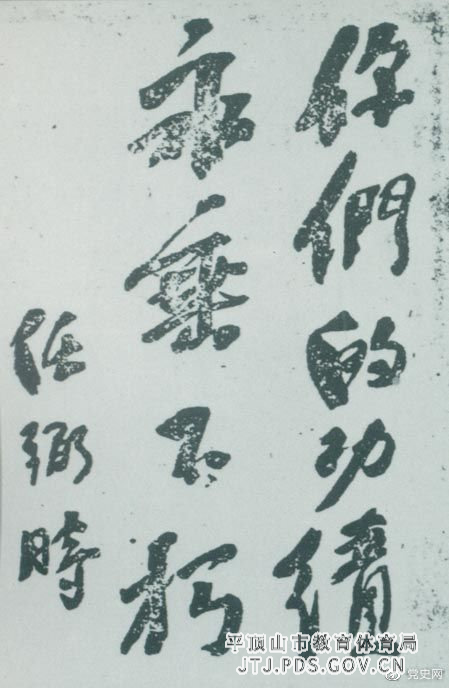 你們的功績
永垂不朽
任弼時
平顶山市教育体育局
JTJ.PDS.GOV.CN
党史网